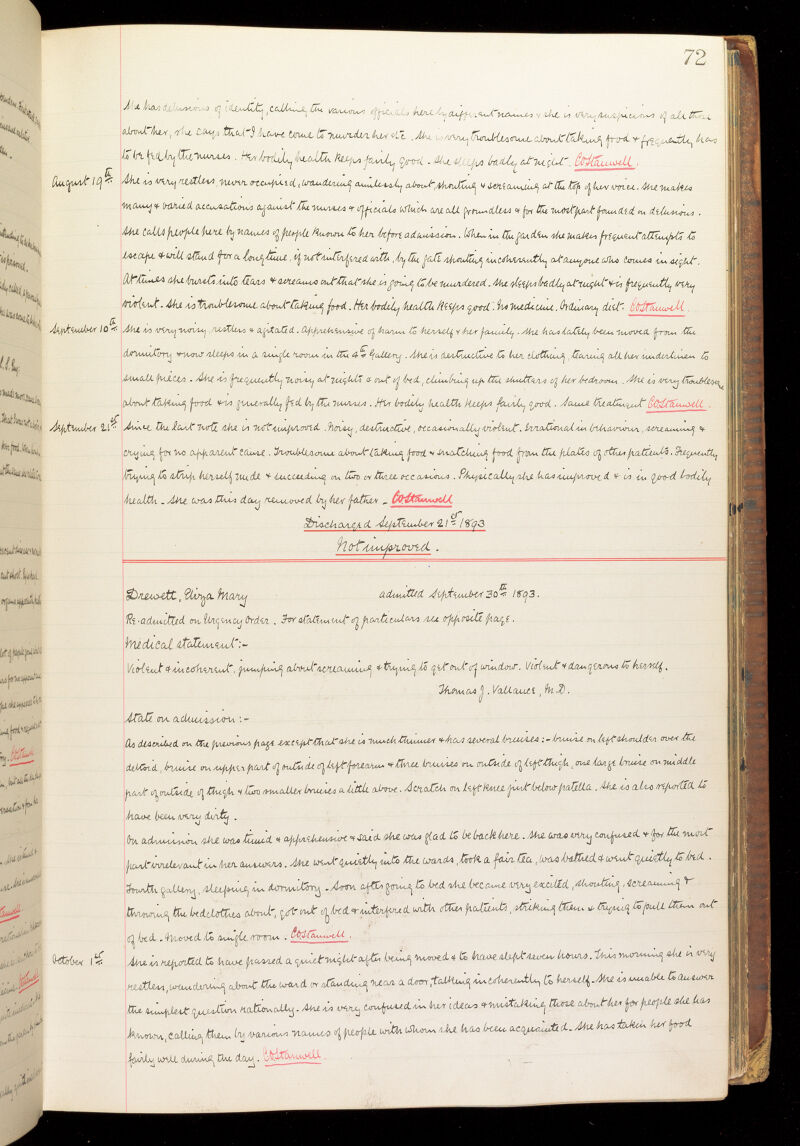 72
She has delusions of identity, calling the various officials here by different names & she is very suspicious of all those
about her, she says that I have come to murder her etc. She is very troublesome about taking food & frequently has
to be fed by the nurses. Her bodily health keeps fairly good. She sleeps badly at night. COStanwell.
August 19th. She is very restless, never occupied, wandering aimlessly about, shouting & screaming at the top of her voice. She makes
many & varied accusations against the nurses & officials which are all groundless & for the most part founded on delusions.
She calls people here by names of people known to her before admission. When in the garden she makes frequent attempts to
escape & will stand for a long time, if not interfered with, by the gate shouting incoherently at anyone who comes in sight.
At times she bursts into tears & screams out that she is going to be murdered. She sleeps badly at night & is frequently very
violent. She is troublesome about taking food. Her bodily health keeps good. No medicine. Ordinary diet. COStanwell.
September 10th. She is very noisy, restless & agitated. Apprehensive of harm to herself & her family. She has lately been moved from the
dormitory & now sleeps in a single room in the 4th Gallery. She is destructive to her clothing, tearing all her underlinen to
small pieces. She is frequently noisy at nights & out of bed, climbing up the shutters of her bedroom. She is very troublesome
about taking food & is generally fed by the nurses. Her bodily health keeps fairly good. Same treatment COStanwell.
September 21st. Since the last note she is not improved. Noisy, destructive, occasionally violent. Irrational in behaviour, screaming &
crying for no apparent cause. Troublesome about taking food & snatching food from the plates of other patients. Frequently
trying to strip herself nude & succeeding on two or three occasions. Physically she has improved & is in good bodily
health. She was this day removed by her father. COStanwell
Discharged September 21st 1893
Not improved.
Drewett, Eliza Mary admitted September 30th 1893.
Re-admitted on Urgency Order. For statement of particulars see opposite page.
Medical statement:-
Violent & incoherent, jumping about screaming & trying to get out of window. Violent & dangerous to herself.
Thomas J. Vallance, M.D.
State on admission:-
As described on the previous page except that she is much thinner & has several bruises:- bruise on left shoulder over the
deltoid, bruise on upper part of outside of left forearm & three bruises on outside of left thigh, one large bruise on middle
part of outside of thigh & two smaller bruises a little above. Scratch on left knee just below patella. She is also reported to
have been very dirty.
On admission she was timid & apprehensive & said she was glad to be back here. She was very confused & for the most
part irrelevant in her answers. She went quietly into the wards, took a fair tea, was bathed & went quietly to bed.
Fourth gallery, sleeping in dormitory. Soon after going to bed she became very excited, shouting, screaming &
throwing the bedclothes about, got out of bed & interfered with other patients, striking them & trying to pull them out
of bed. Moved to single room. COStanwell.
October 1st. She is reported to have passed a quiet night after being moved & to have slept seven hours. This morning she is very
restless, wandering about the ward or standing near a door, talking incoherently to herself. She is unable to answer
the simplest question rationally. She is very confused in her ideas & mistaking those about her for people she has
known, calling them by various names of people with whom she has been acquainted. She has taken her food
fairly well during the day. COStanwell.